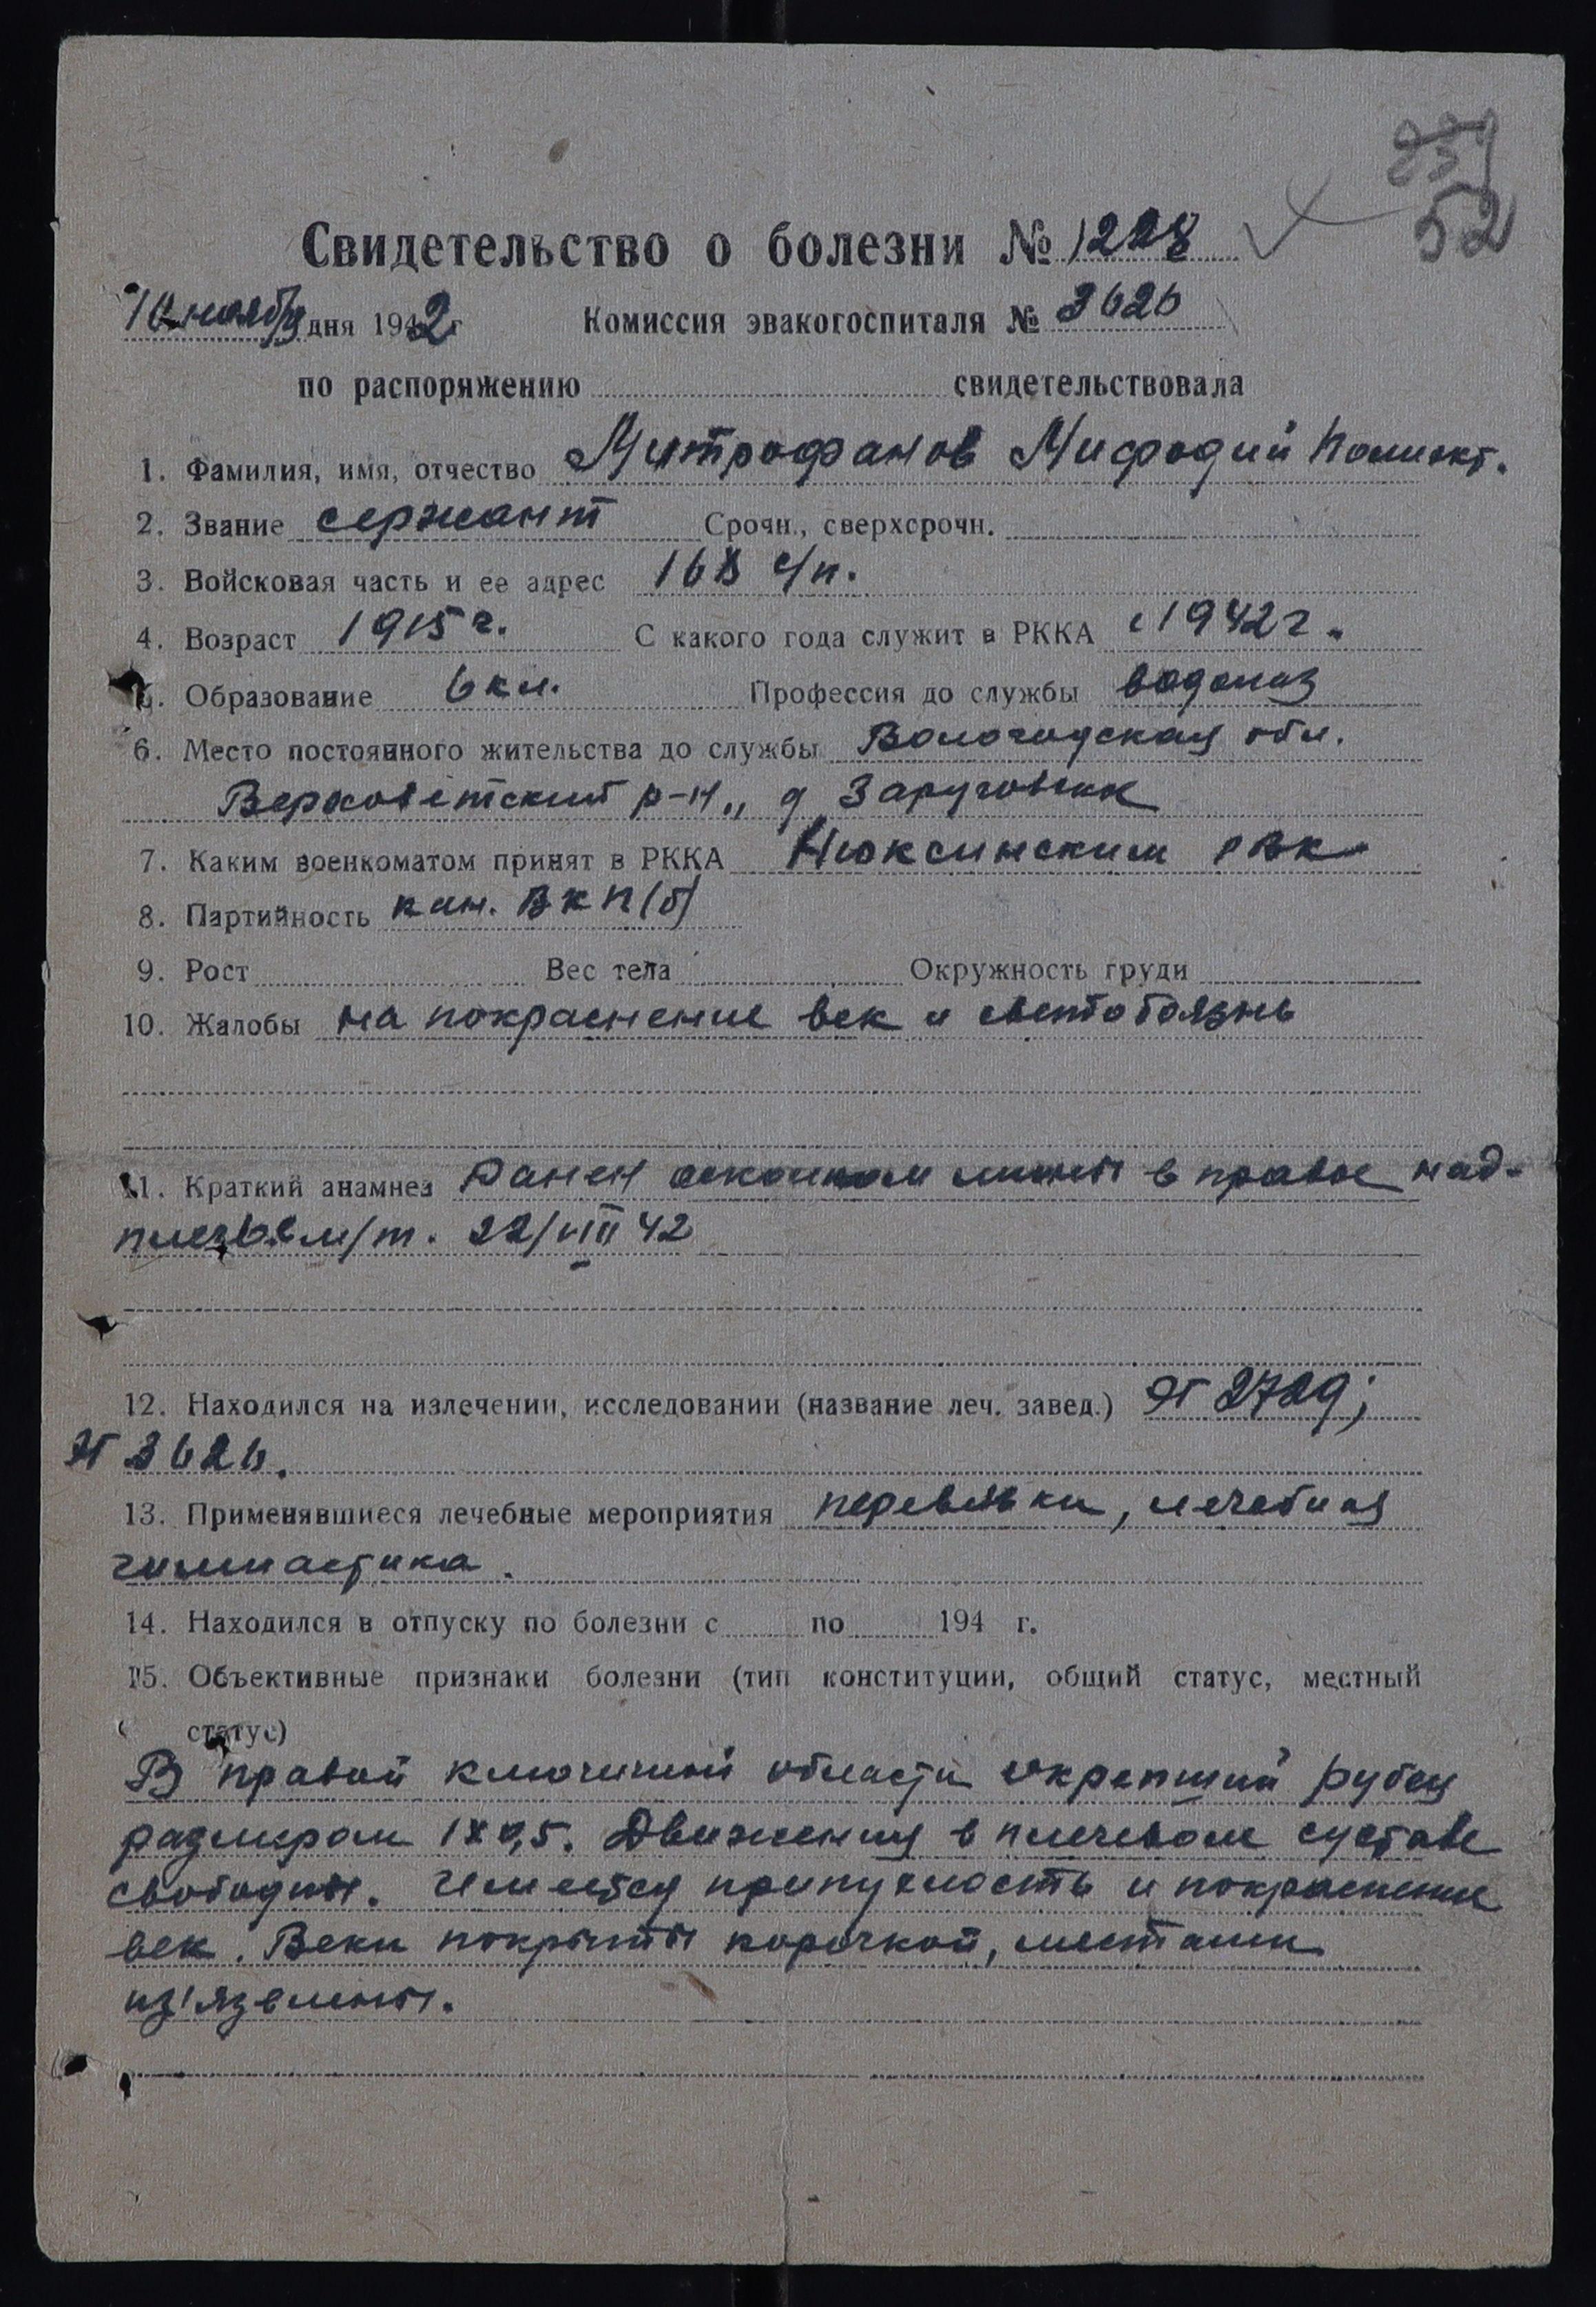 239
52
Свидетельство о болезни № 1228
10 ноября дня 1942 г Комиссия эвакогоспиталя № 3626
по распоряжению свидетельствовала
1. Фамилия, имя, отчество Митрофанов Мифодий Полиект.
2. Звание сержант Срочн., сверхсрочн.
3. Войсковая часть и ее адрес 168 с/п.
4. Возраст 1915 г. С какого года служит в РККА с 1942 г.
5. Образование 6 кл. Профессия до службы водолаз
6. Место постоянного жительства до службы Вологодская обл.
Верховетский р-н,, д
7. Каким военкоматом принят в РККА Нюксинским РВК
8. Партийность кан. ВКП(б)
9. Рост Вес тела Окружность груди
10. Жалобы на покраснение век и светобоязнь
11. Краткий анамнез Ранен осколком мины в правое над-
плечье м/т. 22/VIII 42
12. Находился на излечении, исследовании (название леч. завед.) ЭГ 2729;
ЭГ 3626.
13. Применявшиеся лечебные мероприятия перевязки, лечебная
гимнастика.
14. Находился в отпуску по болезни с по 194 г.
15. Объективные признаки болезни (тип конституции, общий статус, местный
статус)
В правой ключичной области окрепший рубец
размером 1х0,5. Движения в плечевом суставе
свободны. Имеется припухлость и покраснение
век. Веки покрыты корочкой, местами
из'язвлены.